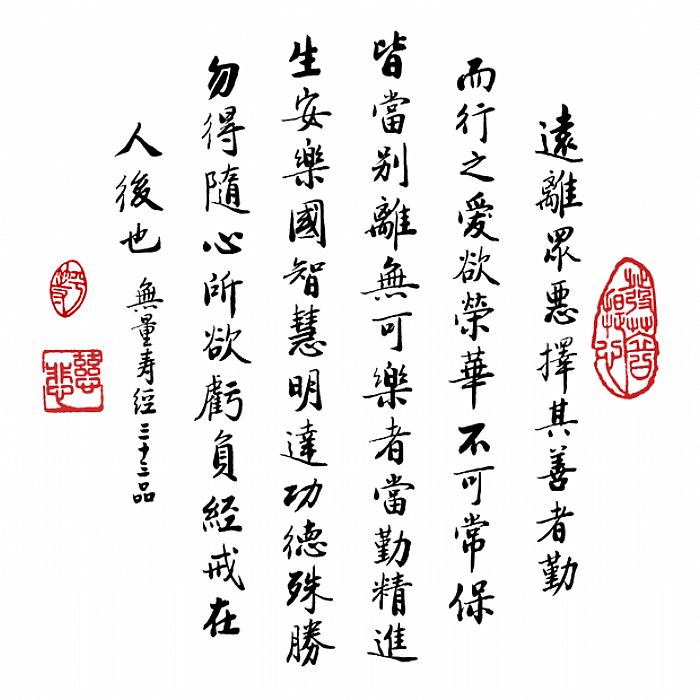 遠離眾惡擇其善者勤
而行之愛欲榮華不可常保
皆當別離無可樂者當勤精進
生安樂國智慧明達功德殊勝
勿得隨心所欲虧負經戒在
人後也
無量寿経三十三品
慈悲